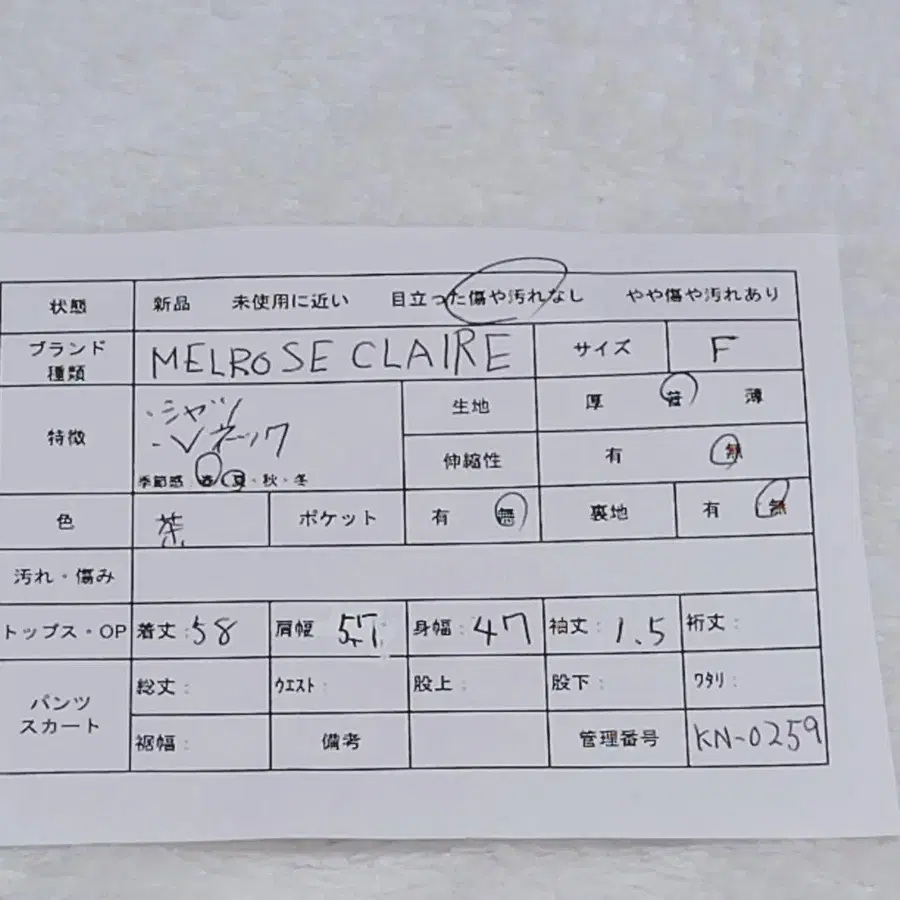 状態 新品 未使用に近い 目立った傷や汚れなし やや傷や汚れあり
ブランド種類 MELROSE CLAIRE サイズ F
特徴 ・シャツ 生地 厚 普 薄
・Vネック 伸縮性 有 無
季節感 春・夏・秋・冬
色 茶 ポケット 有 無 裏地 有 無
汚れ・傷み
トップス・OP 着丈:58 肩幅 57 身幅:47 袖丈:1.5 裄丈:
パンツ 総丈: ウエスト: 股上: 股下: ワタリ:
スカート
裾幅: 備考 管理番号 KN-0259